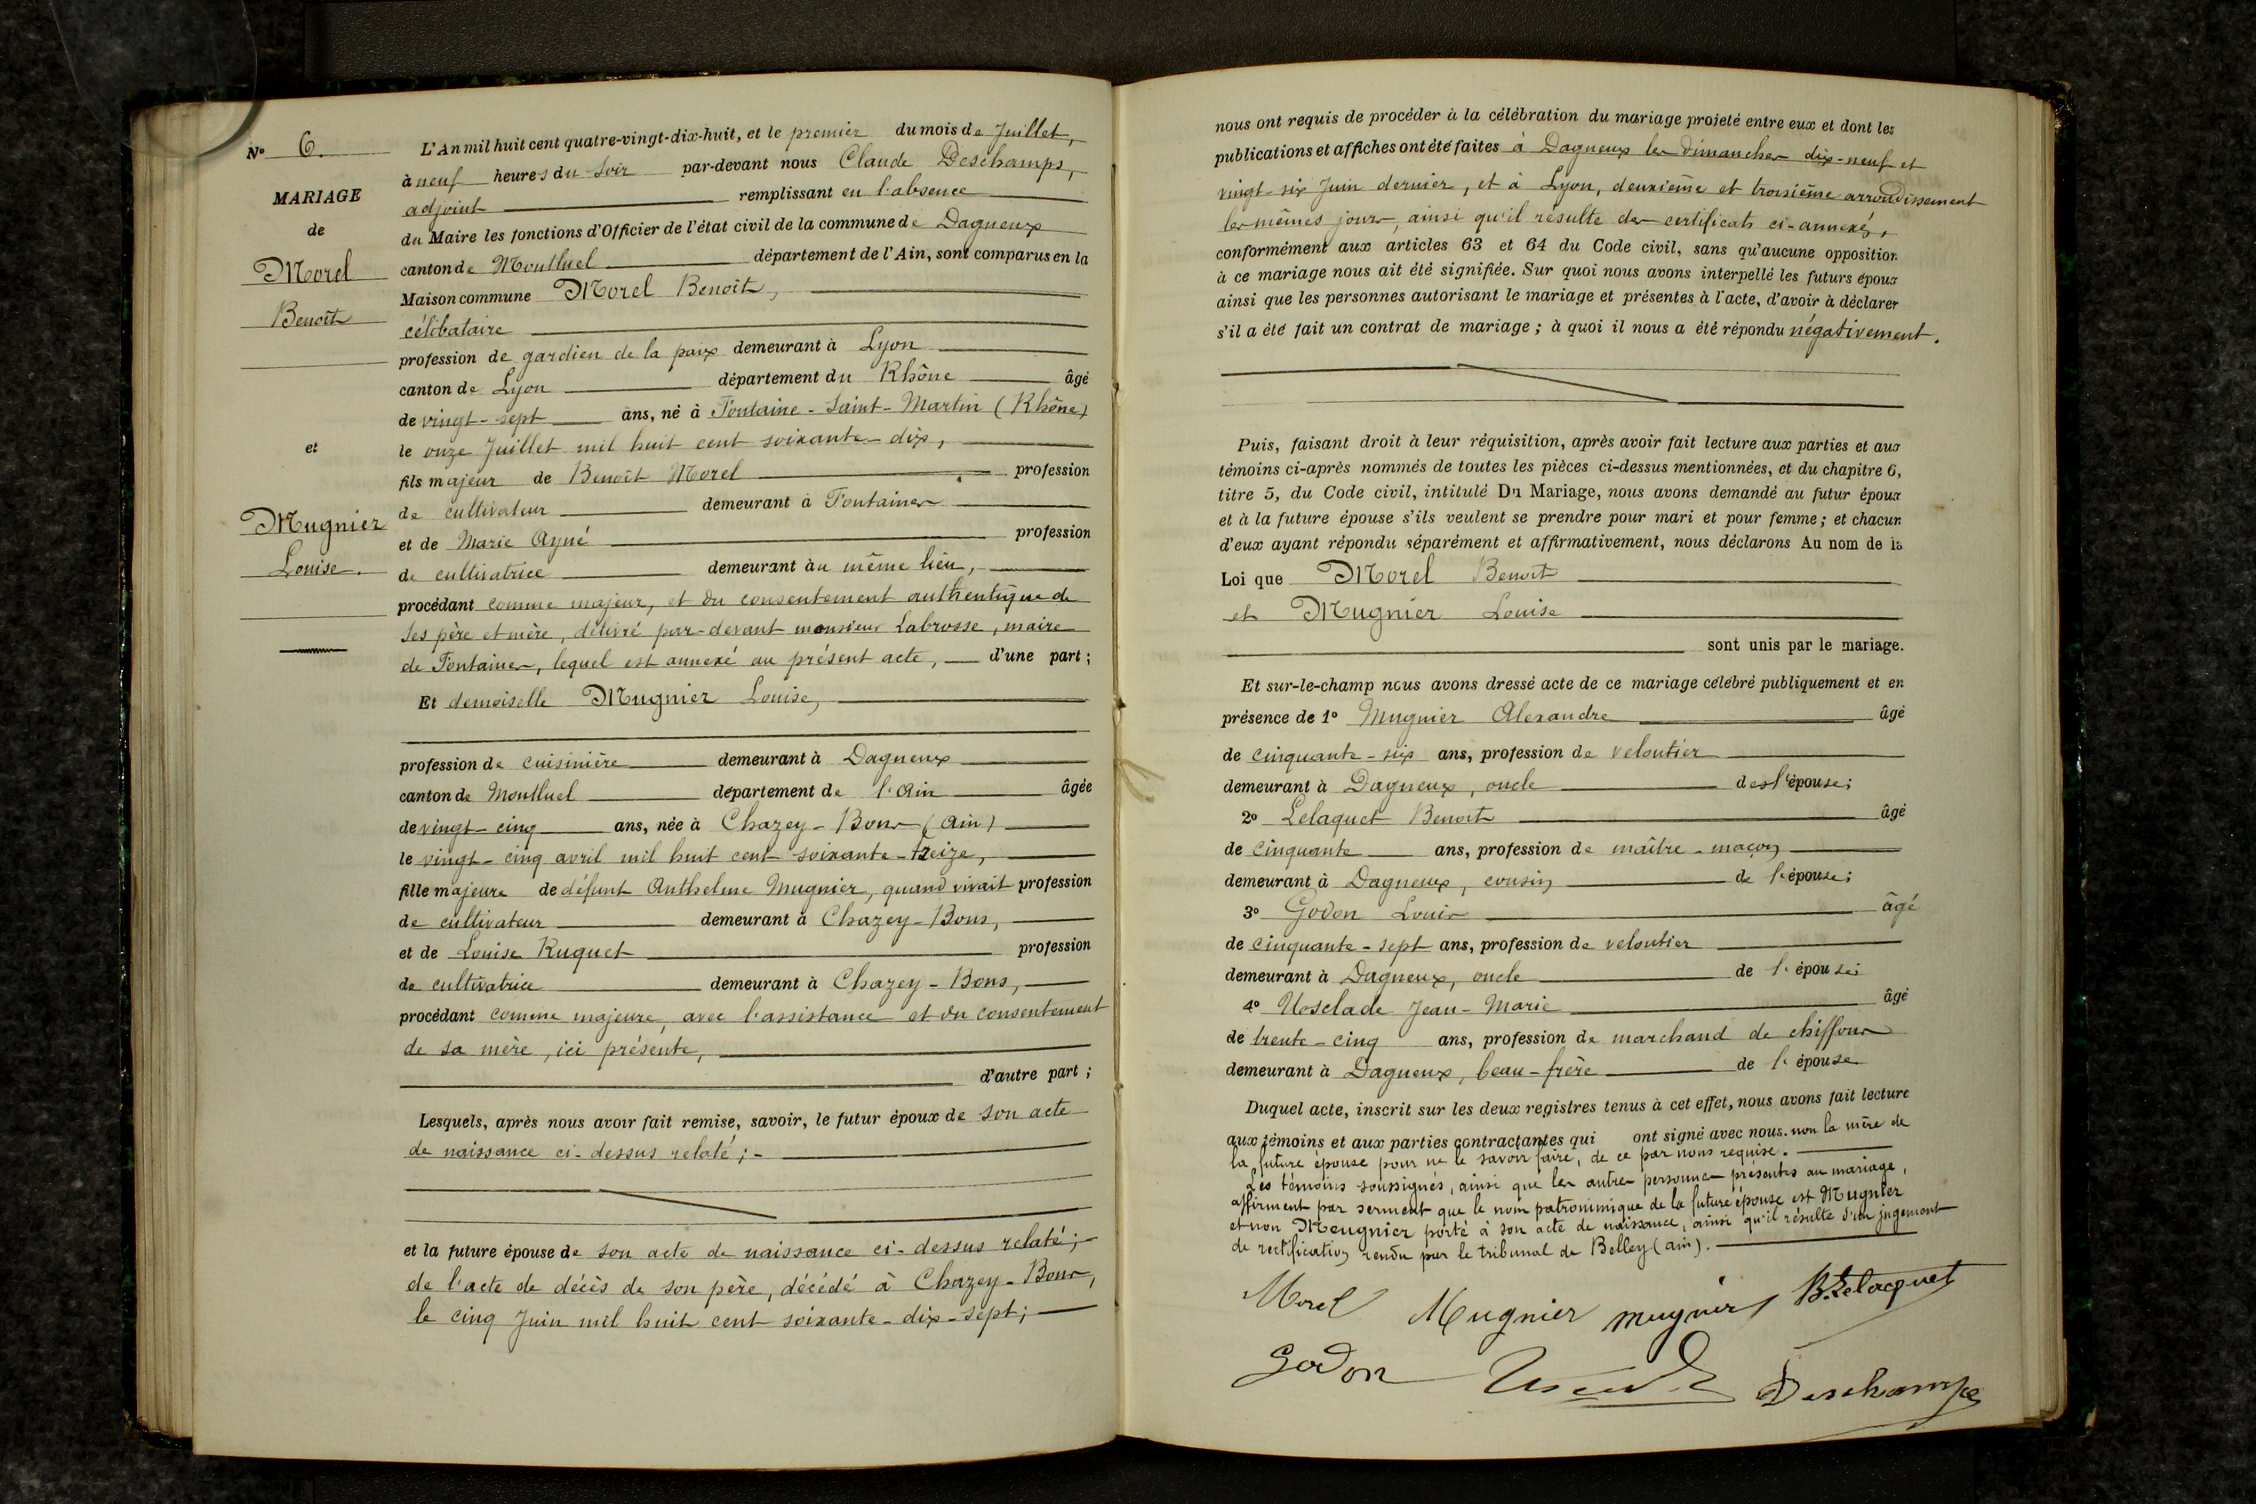 N° 6.
MARIAGE
de
Morel
Benoît
et
Mugnier
Louise.
L'An mil huit cent quatre-vingt-dix-huit, et le premier du mois de Juillet,
à neuf heures du soir par-devant nous Claude Deschamps,
adjoint remplissant en l'absence
du Maire les fonctions d'Officier de l'état civil de la commune de Dagneux
canton de Montluel département de l'Ain, sont comparus en la
Maison commune Morel Benoît,
célibataire
profession de gardien de la paix demeurant à Lyon
canton de Lyon département du Rhône âgé
de vingt-sept ans, né à Fontaine-Saint-Martin (Rhône)
le onze Juillet mil huit cent soixante-dix,
fils majeur de Benoît Morel profession
de cultivateur demeurant à Fontaines
et de Marie Ayné profession
de cultivatrice demeurant au même lieu,
procédant comme majeur, et du consentement authentique de
ses père et mère, délivré par-devant monsieur Labrosse, maire
de Fontaines, lequel est annexé au présent acte, d'une part;
Et demoiselle Mugnier Louise,
profession de cuisinière demeurant à Dagneux
canton de Montluel département de l'Ain âgée
de vingt-cinq ans, née à Chazey-Bons (Ain)
le vingt-cinq avril mil huit cent soixante-treize,
fille majeure de défunt Anthelme Mugnier, quand vivait profession
de cultivateur demeurant à Chazey-Bons,
et de Louise Ruquet profession
de cultivatrice demeurant à Chazey-Bons,
procédant comme majeure, avec l'assistance et du consentement
de sa mère, ici présente,
d'autre part;
Lesquels, après nous avoir fait remise, savoir, le futur époux de son acte
de naissance ci-dessus relaté;-
et la future épouse de son acte de naissance ci-dessus relaté;-
de l'acte de décès de son père, décédé à Chazey-Bons,
le cinq Juin mil huit cent soixante-dix-sept;
nous ont requis de procéder à la célébration du mariage projeté entre eux et dont les
publications et affiches ont été faites à Dagneux les dimanches dix-neuf et
vingt-six Juin dernier, et à Lyon, deuxième et troisième arrondissement
les mêmes jours, ainsi qu'il résulte des certificats ci-annexés,
conformément aux articles 63 et 64 du Code civil, sans qu'aucune opposition
à ce mariage nous ait été signifiée. Sur quoi nous avons interpellé les futurs époux
ainsi que les personnes autorisant le mariage et présentes à l'acte, d'avoir à déclarer
s'il a été fait un contrat de mariage; à quoi il nous a été répondu négativement.
Puis, faisant droit à leur réquisition, après avoir fait lecture aux parties et aux
témoins ci-après nommés de toutes les pièces ci-dessus mentionnées, et du chapitre 6,
titre 5, du Code civil, intitulé Du Mariage, nous avons demandé au futur époux
et à la future épouse s'ils veulent se prendre pour mari et pour femme; et chacun
d'eux ayant répondu séparément et affirmativement, nous déclarons Au nom de la
Loi que Morel Benoît
et Mugnier Louise
sont unis par le mariage.
Et sur-le-champ nous avons dressé acte de ce mariage célébré publiquement et en
présence de 1° Mugnier Alexandre âgé
de cinquante-six ans, profession de veloutier
demeurant à Dagneux, oncle de l'épouse;
2° Lelaquet Benoît âgé
de cinquante ans, profession de maître-maçon
demeurant à Dagneux, cousin de l'épouse;
3° Godon Louis âgé
de cinquante-sept ans, profession de veloutier
demeurant à Dagneux, oncle de l'épouse;
4° Usclade Jean-Marie âgé
de trente-cinq ans, profession de marchand de chiffons
demeurant à Dagneux, beau-frère de l'épouse
Duquel acte, inscrit sur les deux registres tenus à cet effet, nous avons fait lecture
aux témoins et aux parties contractantes qui ont signé avec nous. non la mère de
la future épouse pour ne le savoir faire, de ce par nous requise.
Les témoins soussignés, ainsi que les autres personnes présentes au mariage,
affirment par serment que le nom patronimique de la future épouse est Mugnier
et non Meugnier porté à son acte de naissance, ainsi qu'il résulte d'un jugement
de rectification rendu par le tribunal de Belley (Ain).
Morel Mugnier mugnier B. Lelacquet
Godon Deschamps